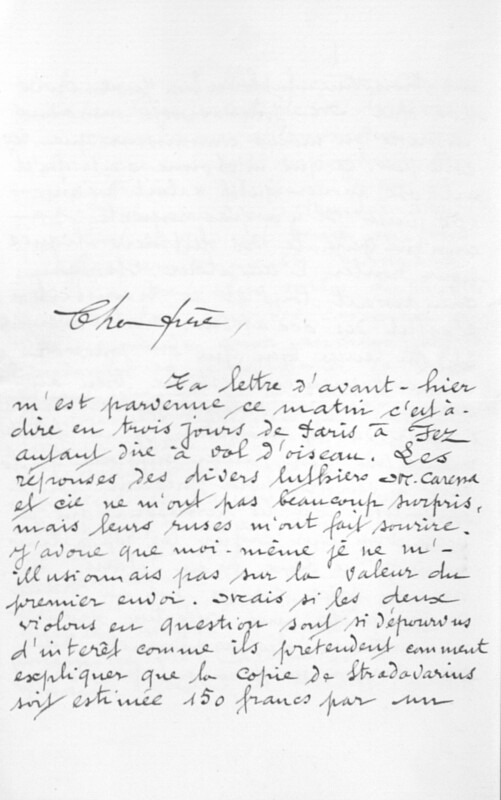 Cher frère,
Ta lettre d'avant-hier
m'est parvenue ce matin c'est à-
dire en trois jours de Paris à Fez
autant dire à vol d'oiseau. Les
réponses des divers luthiers M. Caressa
et cie ne m'ont pas beaucoup surpris,
mais leurs ruses m'ont fait sourire.
J'avoue que moi-même je ne m'-
illusionnais pas sur la valeur du
premier envoi. Mais si les deux
violons en question sont si dépourvus
d'interêt comme ils prétendent comment
expliquer que la copie de Stradavarius
soit estimée 150 francs par un